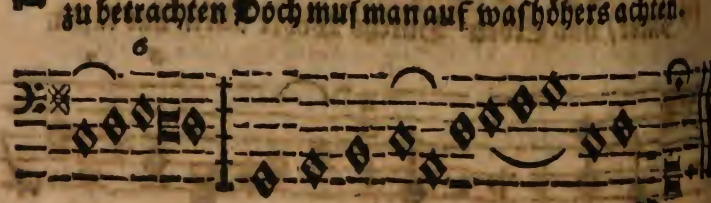 zu betrachten Doch muſ man auf waſ höhers achten.
6